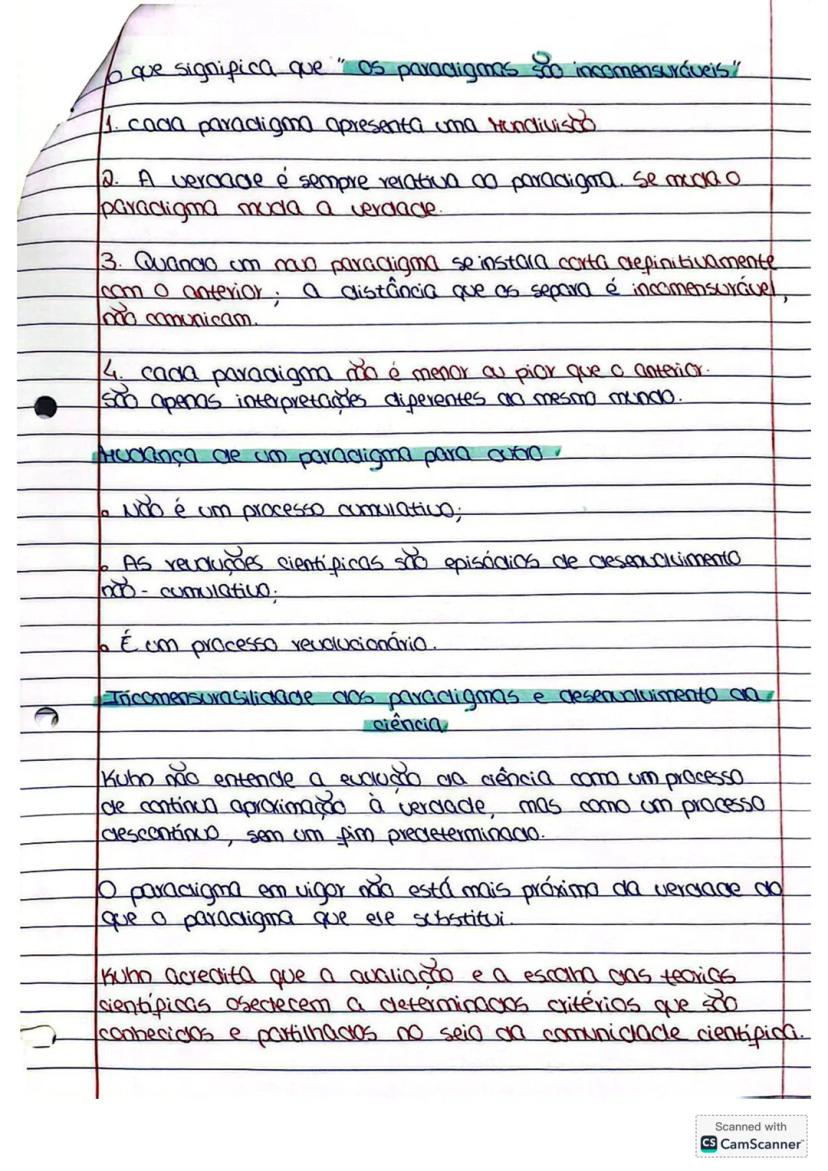 O que significa que "os paradigmas são incomensuráveis"
1. cada paradigma apresenta uma Mundivisão
2. A verdade é sempre relativa ao paradigma. Se muda o
paradigma muda a verdade.
3. Quando um novo paradigma se instala corta definitivamente
com o anterior; a distância que os separa é incomensurável,
não comunicam.
4. cada paradigma não é menor ou pior que o anterior.
são apenas interpretações diferentes do mesmo mundo.
Mudança de um paradigma para outro
• Não é um processo cumulativo;
• As revoluções científicas são episódios de desenvolvimento
não-cumulativo;
• É um processo revolucionário.
Incomensurabilidade dos paradigmas e desenvolvimento da
ciência
Kuhn não entende a evolução da ciência como um processo
de contínua aproximação à verdade, mas como um processo
descontínuo, sem um fim predeterminado.
O paradigma em vigor não está mais próximo da verdade do
que o paradigma que ele substitui.
Kuhn acredita que a avaliação e a escolha das teorias
científicas obedecem a determinados critérios que são
conhecidos e partilhados no seio da comunidade científica.
Scanned with
CS CamScanner